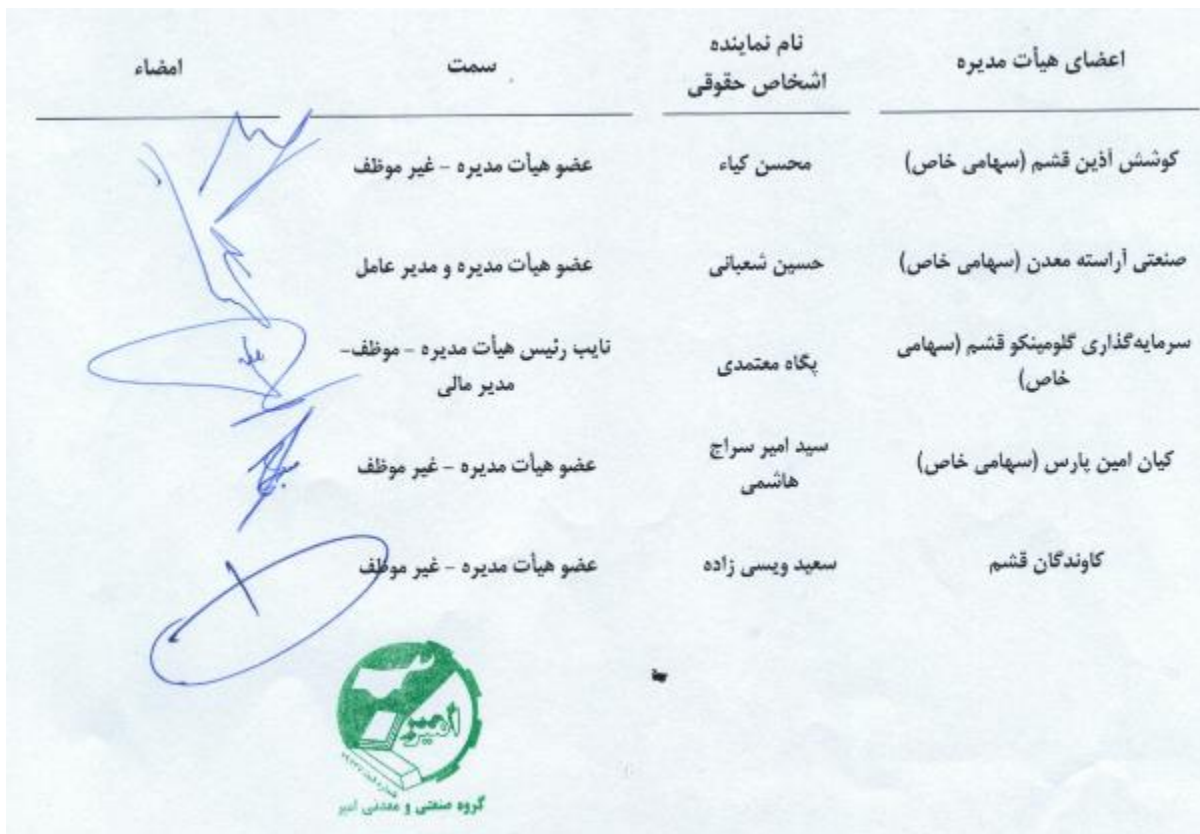 اعضای هیأت مدیره نام نماینده اشخاص حقوقی سمت امضاء
کوشش آذین قشم (سهامی خاص) محسن کیاء عضو هیأت مدیره - غیر موظف
صنعتی آراسته معدن (سهامی خاص) حسین شعبانی عضو هیأت مدیره و مدیر عامل
سرمایه‌گذاری گلومینکو قشم (سهامی خاص) پگاه معتمدی نایب رئیس هیأت مدیره - موظف- مدیر مالی
کیان امین پارس (سهامی خاص) سید امیر سراج هاشمی عضو هیأت مدیره - غیر موظف
کاوندگان قشم سعید ویسی زاده عضو هیأت مدیره - غیر موظف
امیر
گروه صنعتی و معدنی امیر